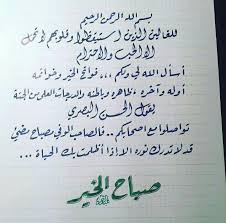 بسم الله الرحمن الرحيم
للغالين الذين استيقظوا وقلوبهم لا تحمل
إلا الحب والاحترام
أسأل الله لي ولكم ... فواتح الخير وخواتمه
أوله وآخره وظاهره وباطنه والدرجات العلى من الجنة
يقول الحسن البصري
تواصلوا مع أصحابكم .. فالصاحب الوفي مصباح مضيء
قد لا تدرك نوره إلا إذا أظلمت بك الحياة ...
صباح الخير